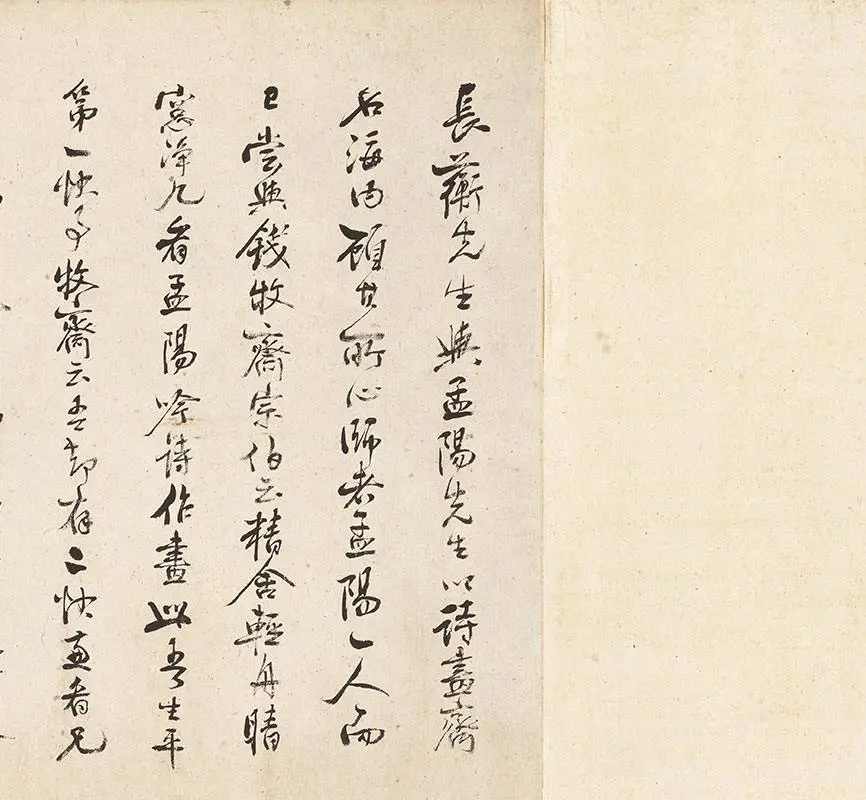 長蘅先生與孟陽先生以詩畫齊
名海內顧其所心師者孟陽一人而
已嘗與錢牧齋宗伯云精舍輕舟晴
窓淨几看孟陽吟詩作畫此吾生平
第一快事牧齋云吾却有二快兼看兄